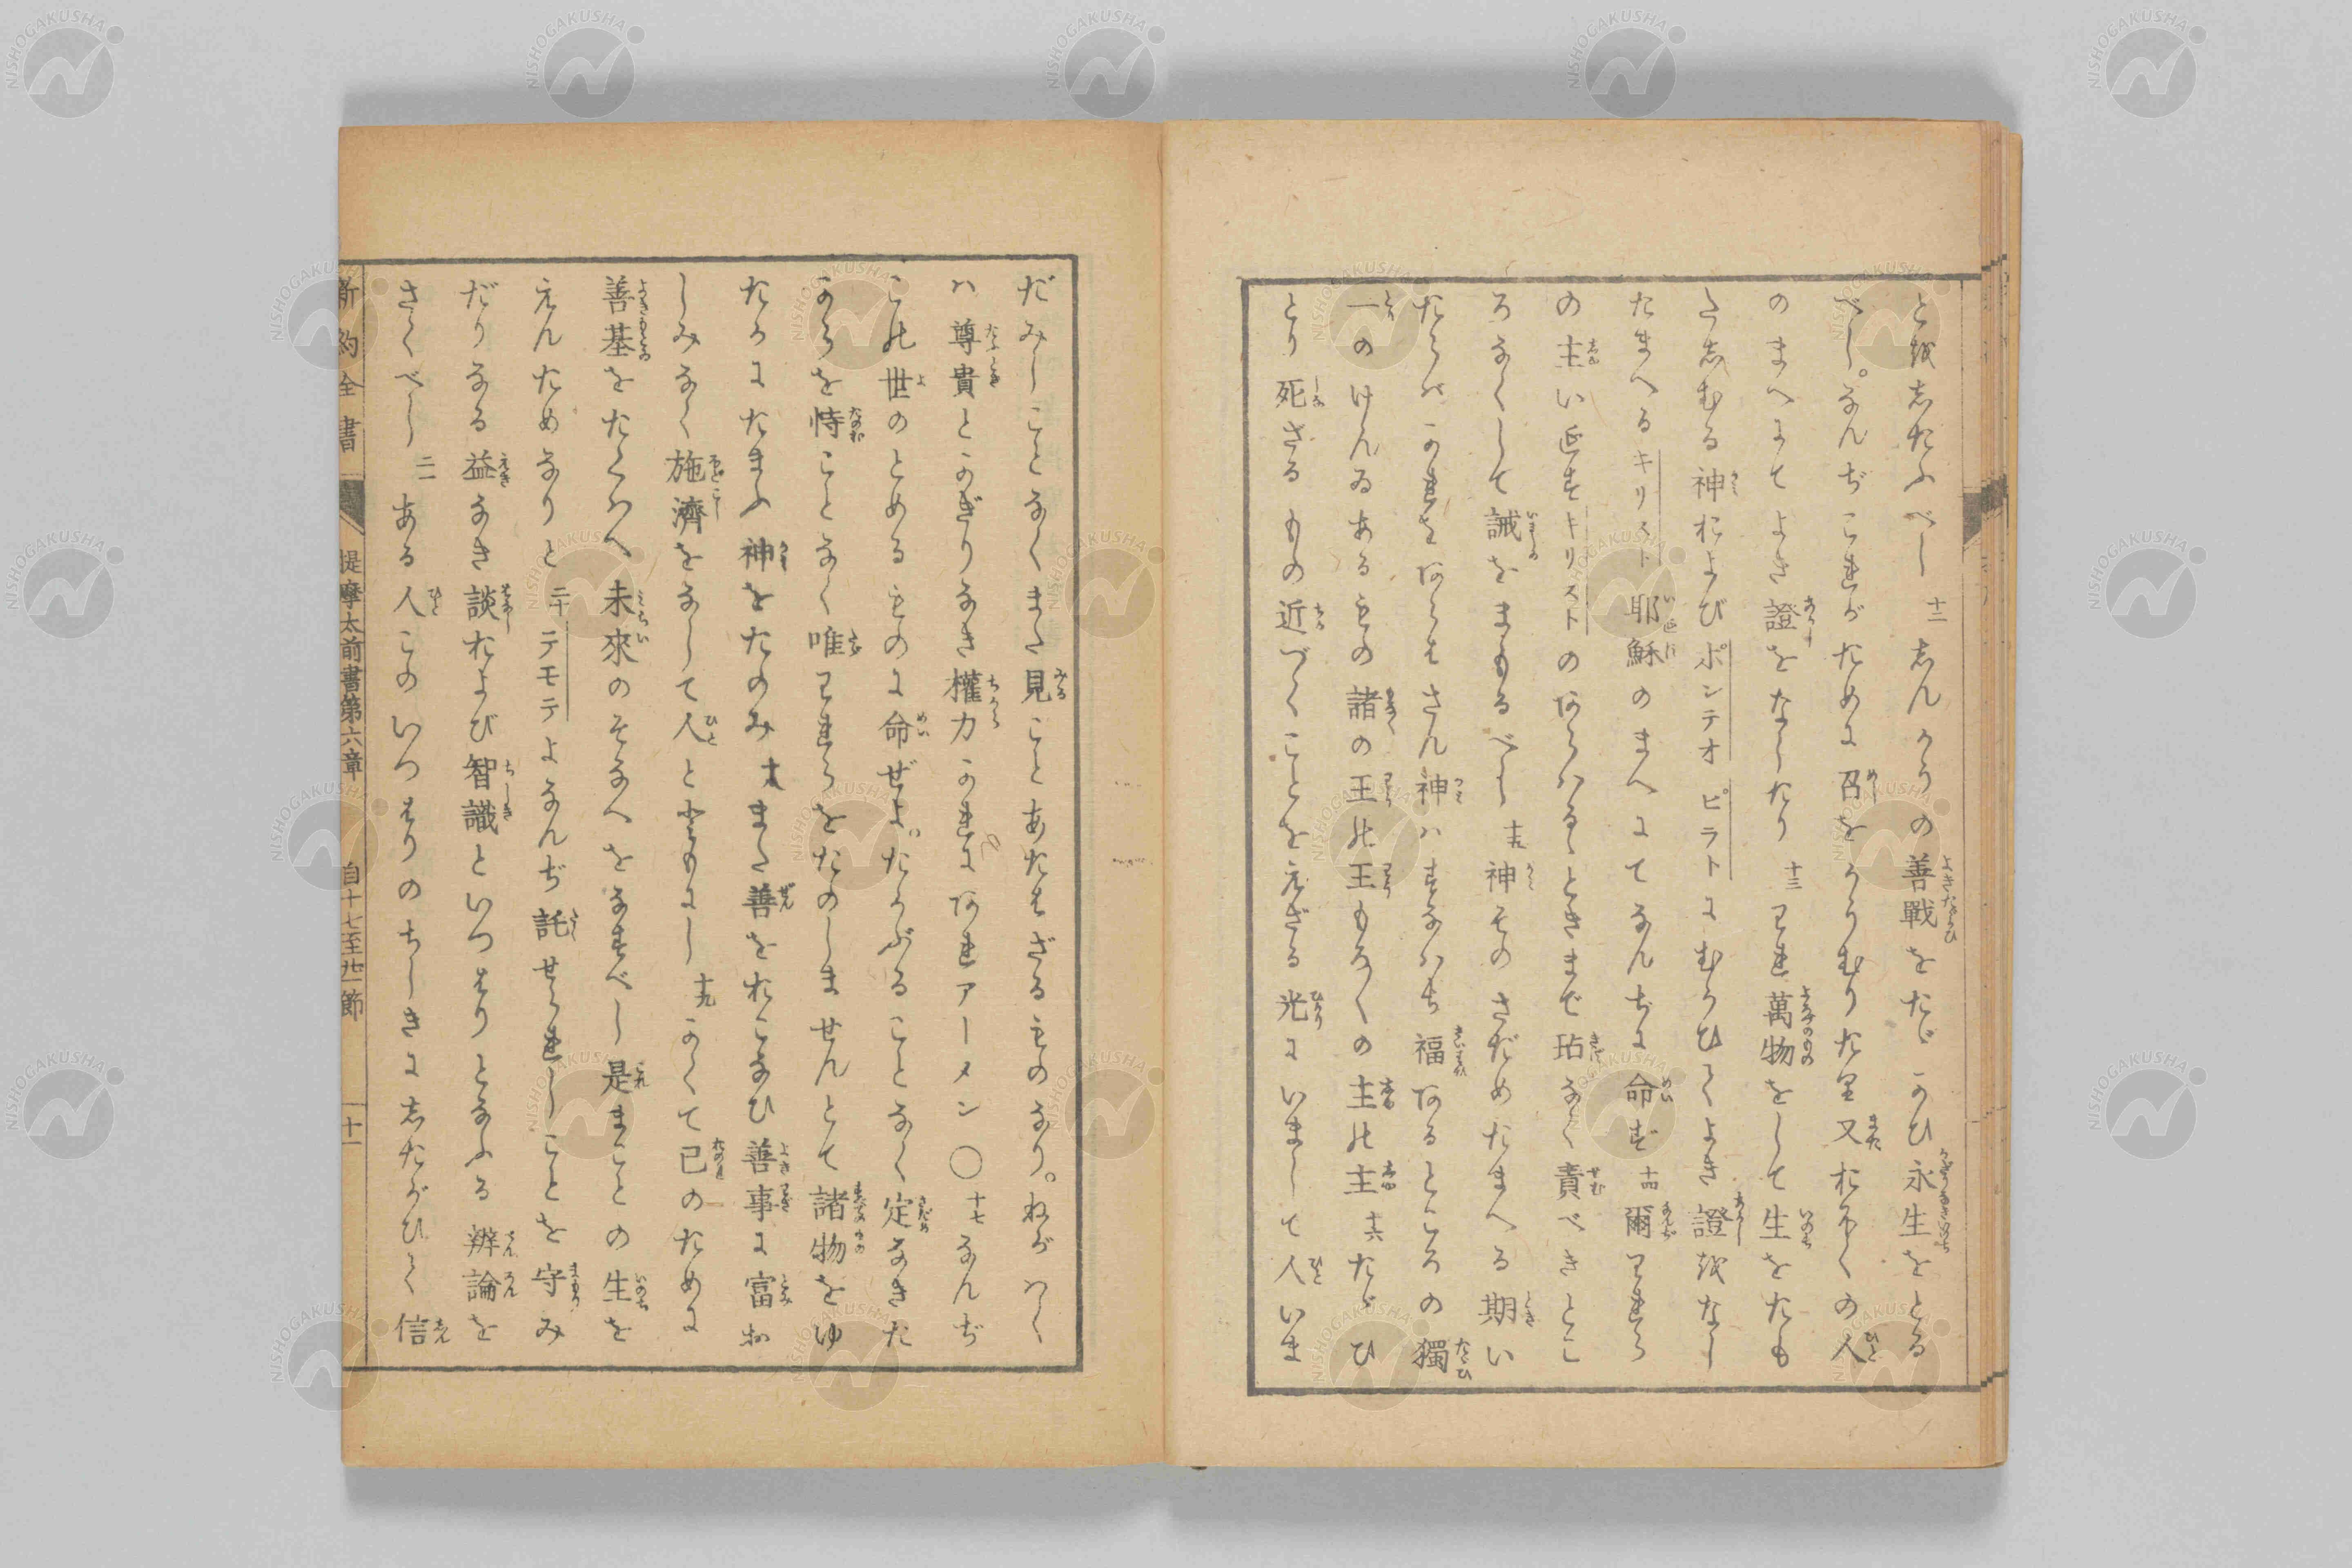 とをしたふべし 十二 しんかうの善戰をたゞかひ永生をとる
べし。なんぢこれがために召をかうむりたり又おほくの人
のまへにてよき證をなしたり 十三 われ萬物をして生をたも
たしむる神およびポンテオ ピラトにむかひてよき證をなし
たまへるキリスト耶穌のまへにてなんぢに命ず 十四 爾われら
の主いエすキリストのあらはるゝときまで玷なく責べきとこ
ろなくして誡をまもるべし 十五 神そのさだめたまへる期い
たらバかれをあらはさん神ハすなハち福あるところの獨
一のけんゐあるものの諸の王の王もろ〱の主の主 十六 たゞひ
とり死ざるもの近づくことをえざる光にいまして人いま
だみしことなくまた見ことあたはざるものなり。ねがハく
ハ尊貴とかぎりなき權力かれにあれアーメン 〇 十七 なんぢ
この世のとめるものに命ぜよ。たかぶることなく定なきた
からを恃ことなく唯われらをたのしませんとて諸物をゆ
たかにたまふ神をたのみ 十八 また善をおこなひ善事に富お
しみなく施濟をなして人とともにし 十九 かくて己のために
善基をたくハへ未來のそなへをなすべし是まことの生を
えんためなりと 二十 テモテよなんぢ託せられしことを守み
だりなる益なき談および智識といつはりとなふる辨論を
さくべし 二一 ある人このいつはりのちしきにしたがひて信
新約全書 提摩太前書第六章 自十七至廿一節 十一